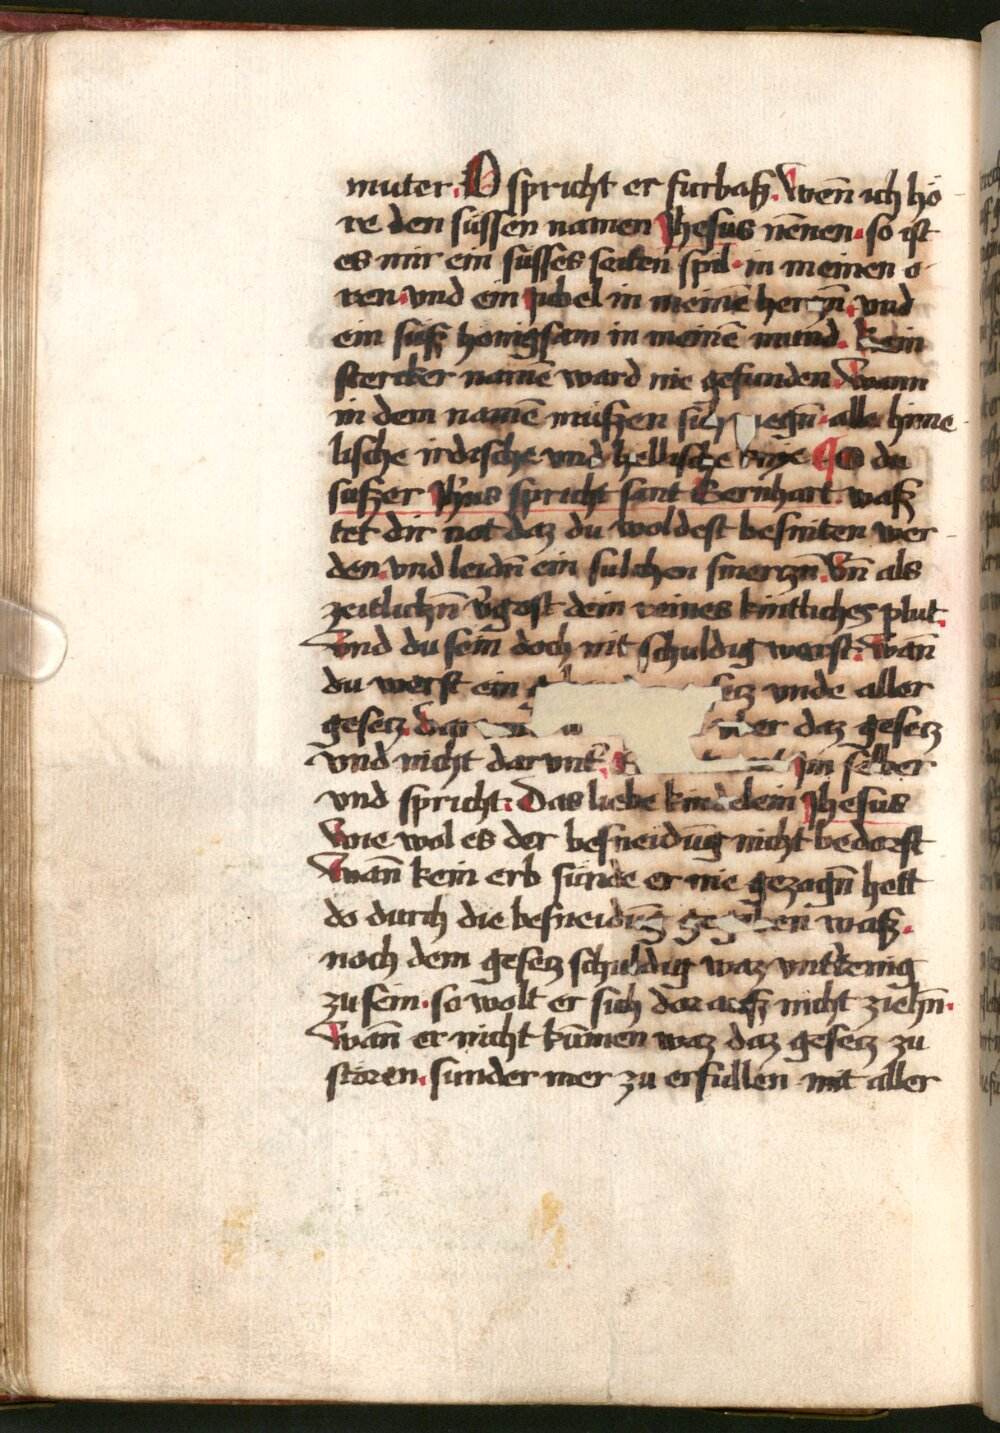 muter. O spricht er furbaß. Wen̄ ich hö
re den süssen namen Jhesus nēnen. so ist
es mir ein süsses seiten spil. in meinen o
ren. vnd ein jubel in meinē hertzn̄. vnd
ein süß honigsam in meinē mund. kein
stercker namē ward nie gefunden. Wann
in dem namē müßen sich alle hime
lische irdische vnd hellische knye ¶ O du
sußer Jhūs spricht sant Bernhart. waß
tet dir not daz du woldest besniten wer
den. vnd leidn̄ ein sulchen smertzn̄. Vn̄ als
zeitlichn̄ v̄gost dein reines kintliches plut.
Vnd du sein̄ doch nit schuldig werst. Wan̄
du werst ein vnde aller
gesetz. daz gesetz
vnd nicht darvnt̄. im selber
vnd spricht. Das liebe kindelein Jhesus
Wie wol es der besneidūg nicht bedorft
Wan̄ kein erb sünde er nie gezogn̄ hett
do durch die besneidūg gegeben waß.
noch dem gesetz schuldig waz vnttenig
zu sein. so wolt er sich dorauß nicht ziehn̄.
Wan̄ er nicht kūmen waz daz gesetz zu
stören. sunder mer zu erfullen mit aller